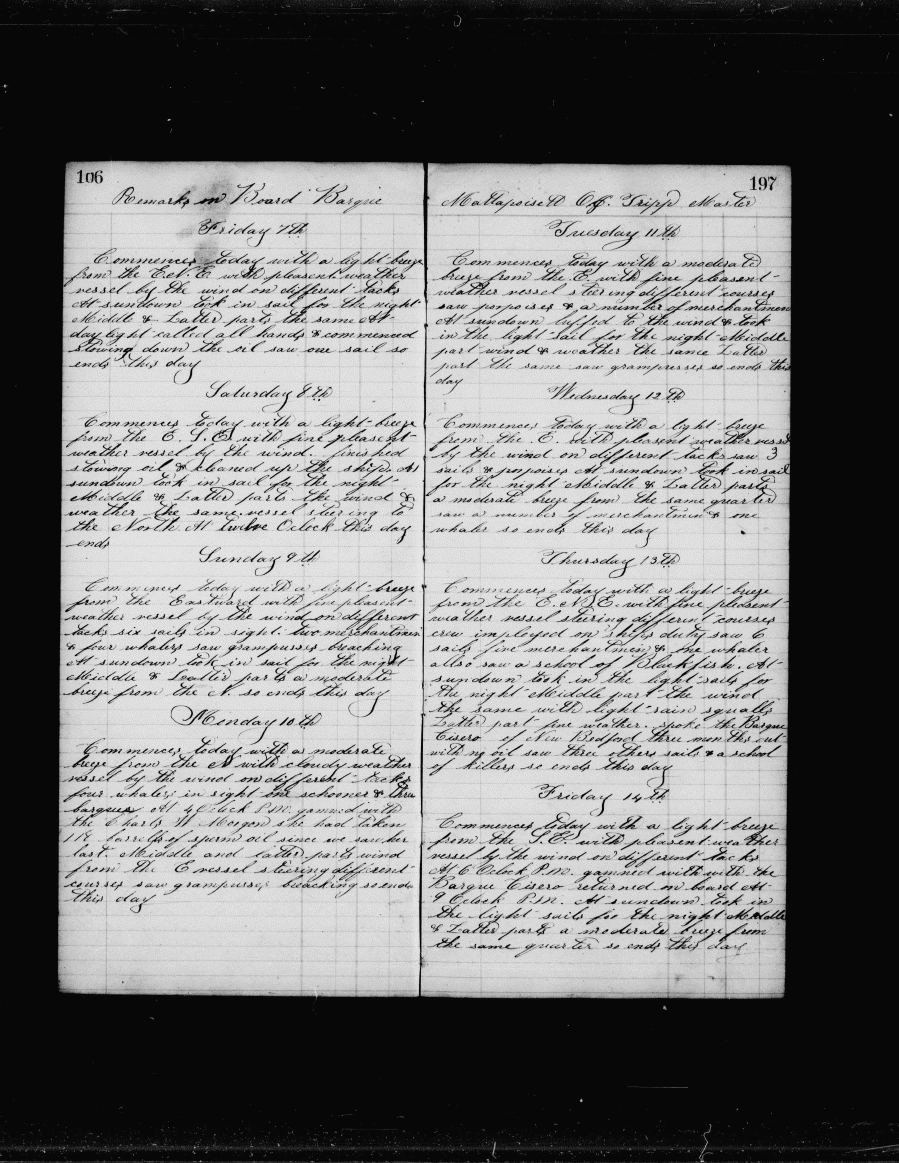 106
Remarks on Board Barque
Friday 7th
Commences today with a light breeze
from the E.N.E. with pleasent weather
vessel by the wind on different tacks
At sundown took in sail for the night
Middle & Latter parts the same At
day light called all hands & commenced
stowing down the oil saw one sail so
ends this day
Saturday 8th
Commences today with a light breeze
from the E. S. E. with fine pleasent
weather vessel by the wind. finished
stowing oil & cleaned up the ship. At
sundown took in sail for the night
Middle & Latter parts the wind &
weather the same vessel steering to
the North At twelve Oclock this day
ends
Sunday 9th
Commences today with a light breeze
from the Eastward with fine pleasent
weather vessel by the wind on different
tacks six sails in sight two merchantmen
& four whalers saw grampusses breaching
At sundown took in sail for the night
Middle & Latter parts a moderate
breeze from the N so ends this day
Monday 10th
Commences today with a moderate
breeze from the N with cloudy weather
vessel by the wind on different tacks
four whalers in sight one schooner & three
barques At 4 Oclock P.M. gammed with
the Charls W Morgon she had taken
119 barrells of sperm oil since we saw her
last. Middle and latter parts wind
from the E vessel steering different
courses saw grampusses breaching so ends
this day
197
Mattapoisett Tripp Master
Tuesday 11th
Commences today with a moderate
breeze from the E with fine pleasent
weather vessel steering different courses
saw popoises & a number of merchantmen
At sundown luffed to the wind & took
in the light sail for the night Middle
part wind & weather the same Latter
part the same saw grampusses so ends this
day
Wednesday 12th
Commences today with a light breeze
from the E. with pleasent weather vessel
by the wind on different tacks saw 3
sails & popoises At sundown took in sail
for the night Middle & Latter parts
a moderate breeze from the same quarter
saw a number of merchantmen & one
whaler so ends this day
Thursday 13th
Commences today with a light breeze
from the E.N.E. with fine pleasent
weather vessel steering different courses
crew imployed on ships duty saw 6
sails five merchantmen & one whaler
allso saw a school of Blackfish. At
sundown took in the light sails for
the night Middle part the wind
the same with light rain squalls
Latter part fine weather. spoke the Barque
Cisero of New Bedfod three months out
with no oil saw three others sails & a school
of killers so ends this day
Friday 14th
Commences today with a light breeze
from the S.E. with pleasent weather
vessel by the wind on different tacks
At 6 Oclock P.M. gammed with with the
Barque Cisero returned on board At
9 Oclock P.M. At sundown took in
the light sails for the night Middle
& Latter parts a moderate breeze from
the same quarter so ends this day